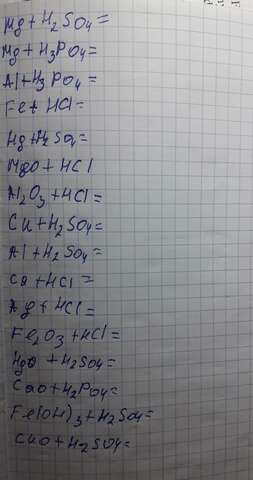 Mg + H₂SO₄=
Mg + H₃PO₄=
Al + H₃PO₄=
Fe + HCl=
Hg + H₂SO₄=
MgO + HCl
Al₂O₃ + HCl=
Cu + H₂SO₄=
Al + H₂SO₄=
Ca + HCl=
Ag + HCl=
Fe₂O₃ + HCl=
HgO + H₂SO₄=
CaO + H₂PO₄=
Fe(OH)₃ + H₂SO₄=
CuO + H₂SO₄=